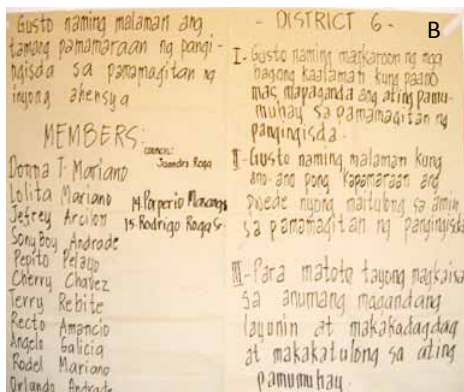 Gusto naming malaman ang
tamang pamamaraan ng pangi-
ngisda sa pamamagitan ng
inyong ahensya
MEMBERS:
Joandra Roga
Donna T. Mariano
Lolita Mariano
Jefrey Arcilon
Sonyboy Andrade
Pepito Pelayo
Cherry Chavez
Terry Rebite
Recto Amancio
Angelo Galicia
Rodel Mariano
Orlando Andrade
14. Porperio
15. Rodrigo Roga Sr.
- DISTRICT 6 -
B
I- Gusto naming magkaroon ng mga
bagong kaalaman kung paano
mas mapaganda ang ating pamu-
muhay sa pamamagitan ng
pangingisda.
II- Gusto naming malaman kung
ano-ano pong kapamaraan ang
pwede nyong maitulong sa amin
sa pamamagitan ng pangingisda
III- Para matoto tayong magkaisa
sa anumang magandang
layunin at makakadagdag
at makakatulong sa ating
pamumuhay.